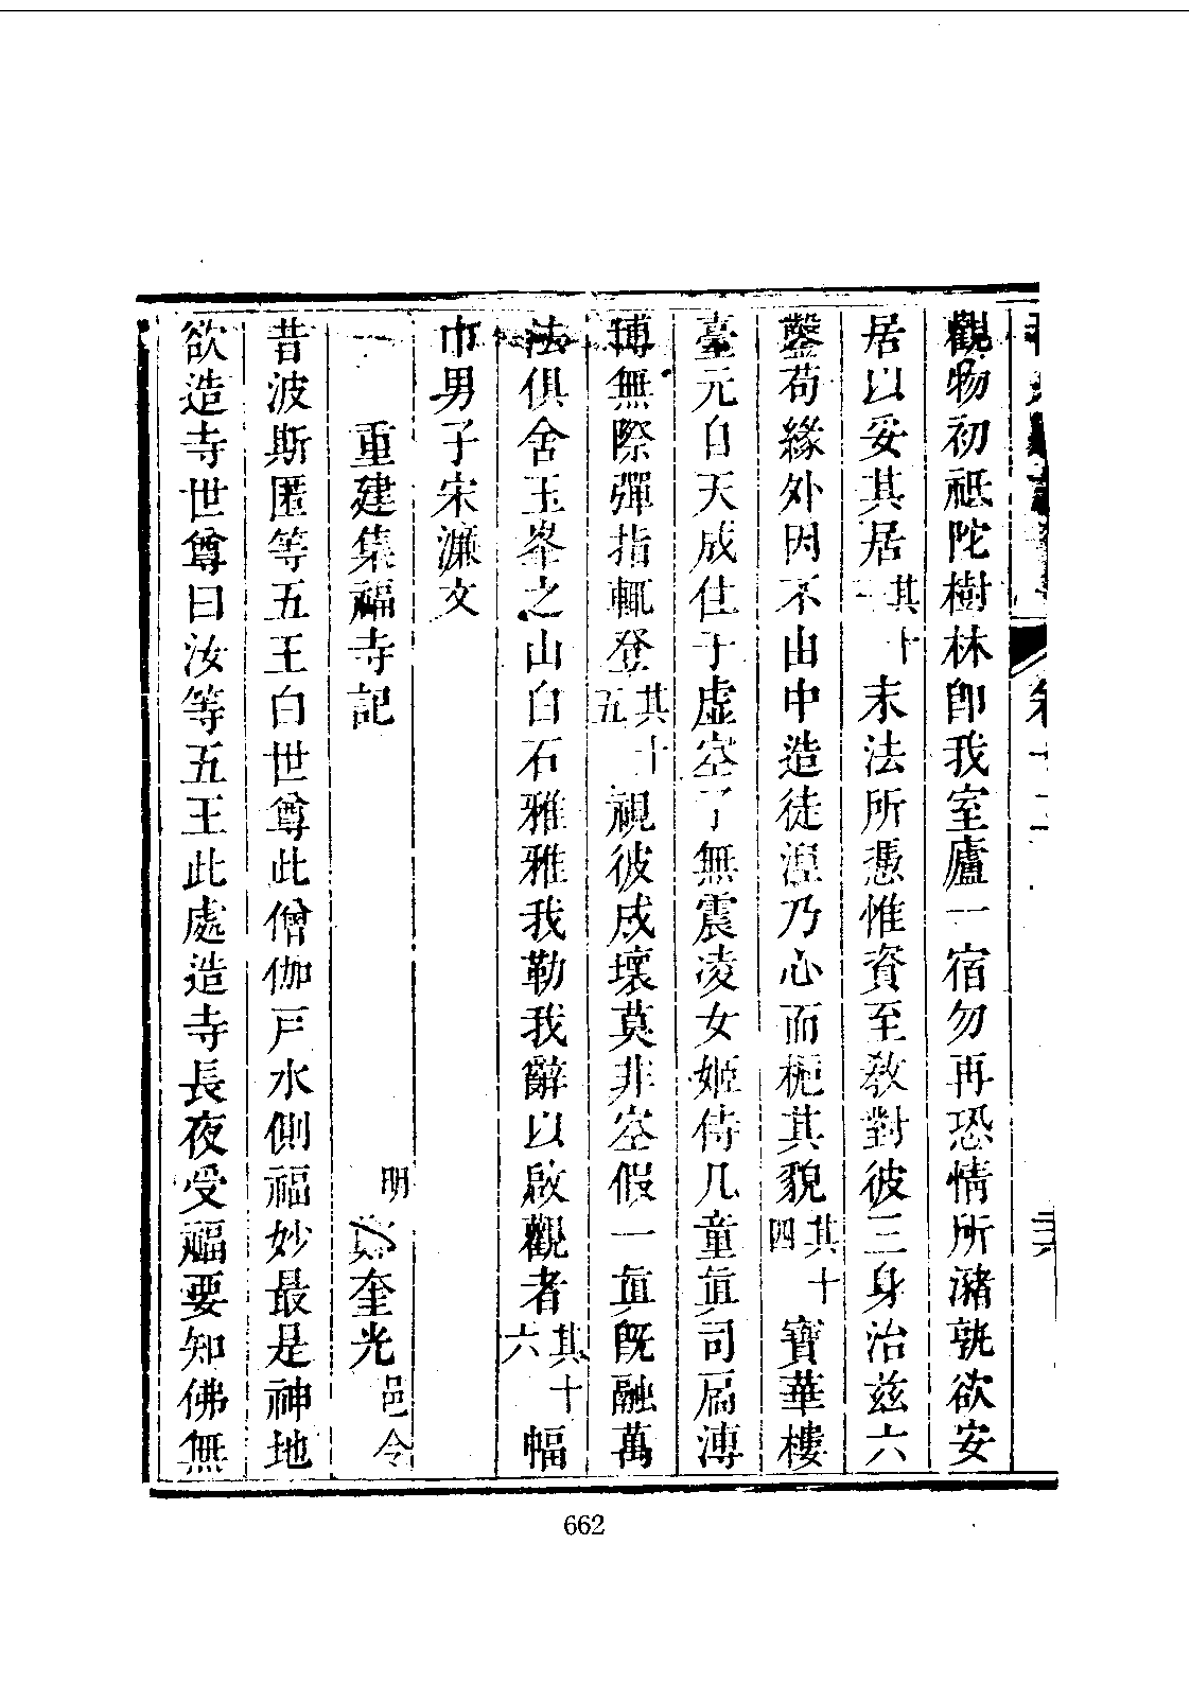 觀物初祗陀樹林卽我室廬一宿勿再恐情所瀦孰欲安
居以妥其居其十一末法所憑惟資至敎對彼三身治茲六
鑿苟緣外因不由中造徒涅乃心而梔其貌其十四寶華樓
臺元自天成住于虛空了無震凌女姬侍几童眞司扃溥
博無際彈指輒登其十五視彼成壞莫非空假一眞旣融萬
法俱舍玉峯之山白石雅雅我勒我辭以啟觀者其十六幅
巾男子宋濂文
重建集福寺記 明 奎光邑令
昔波斯匿等五王白世尊此僧伽戸水側福妙最是神地
欲造寺世尊曰汝等五王此處造寺長夜受福要知佛無
662